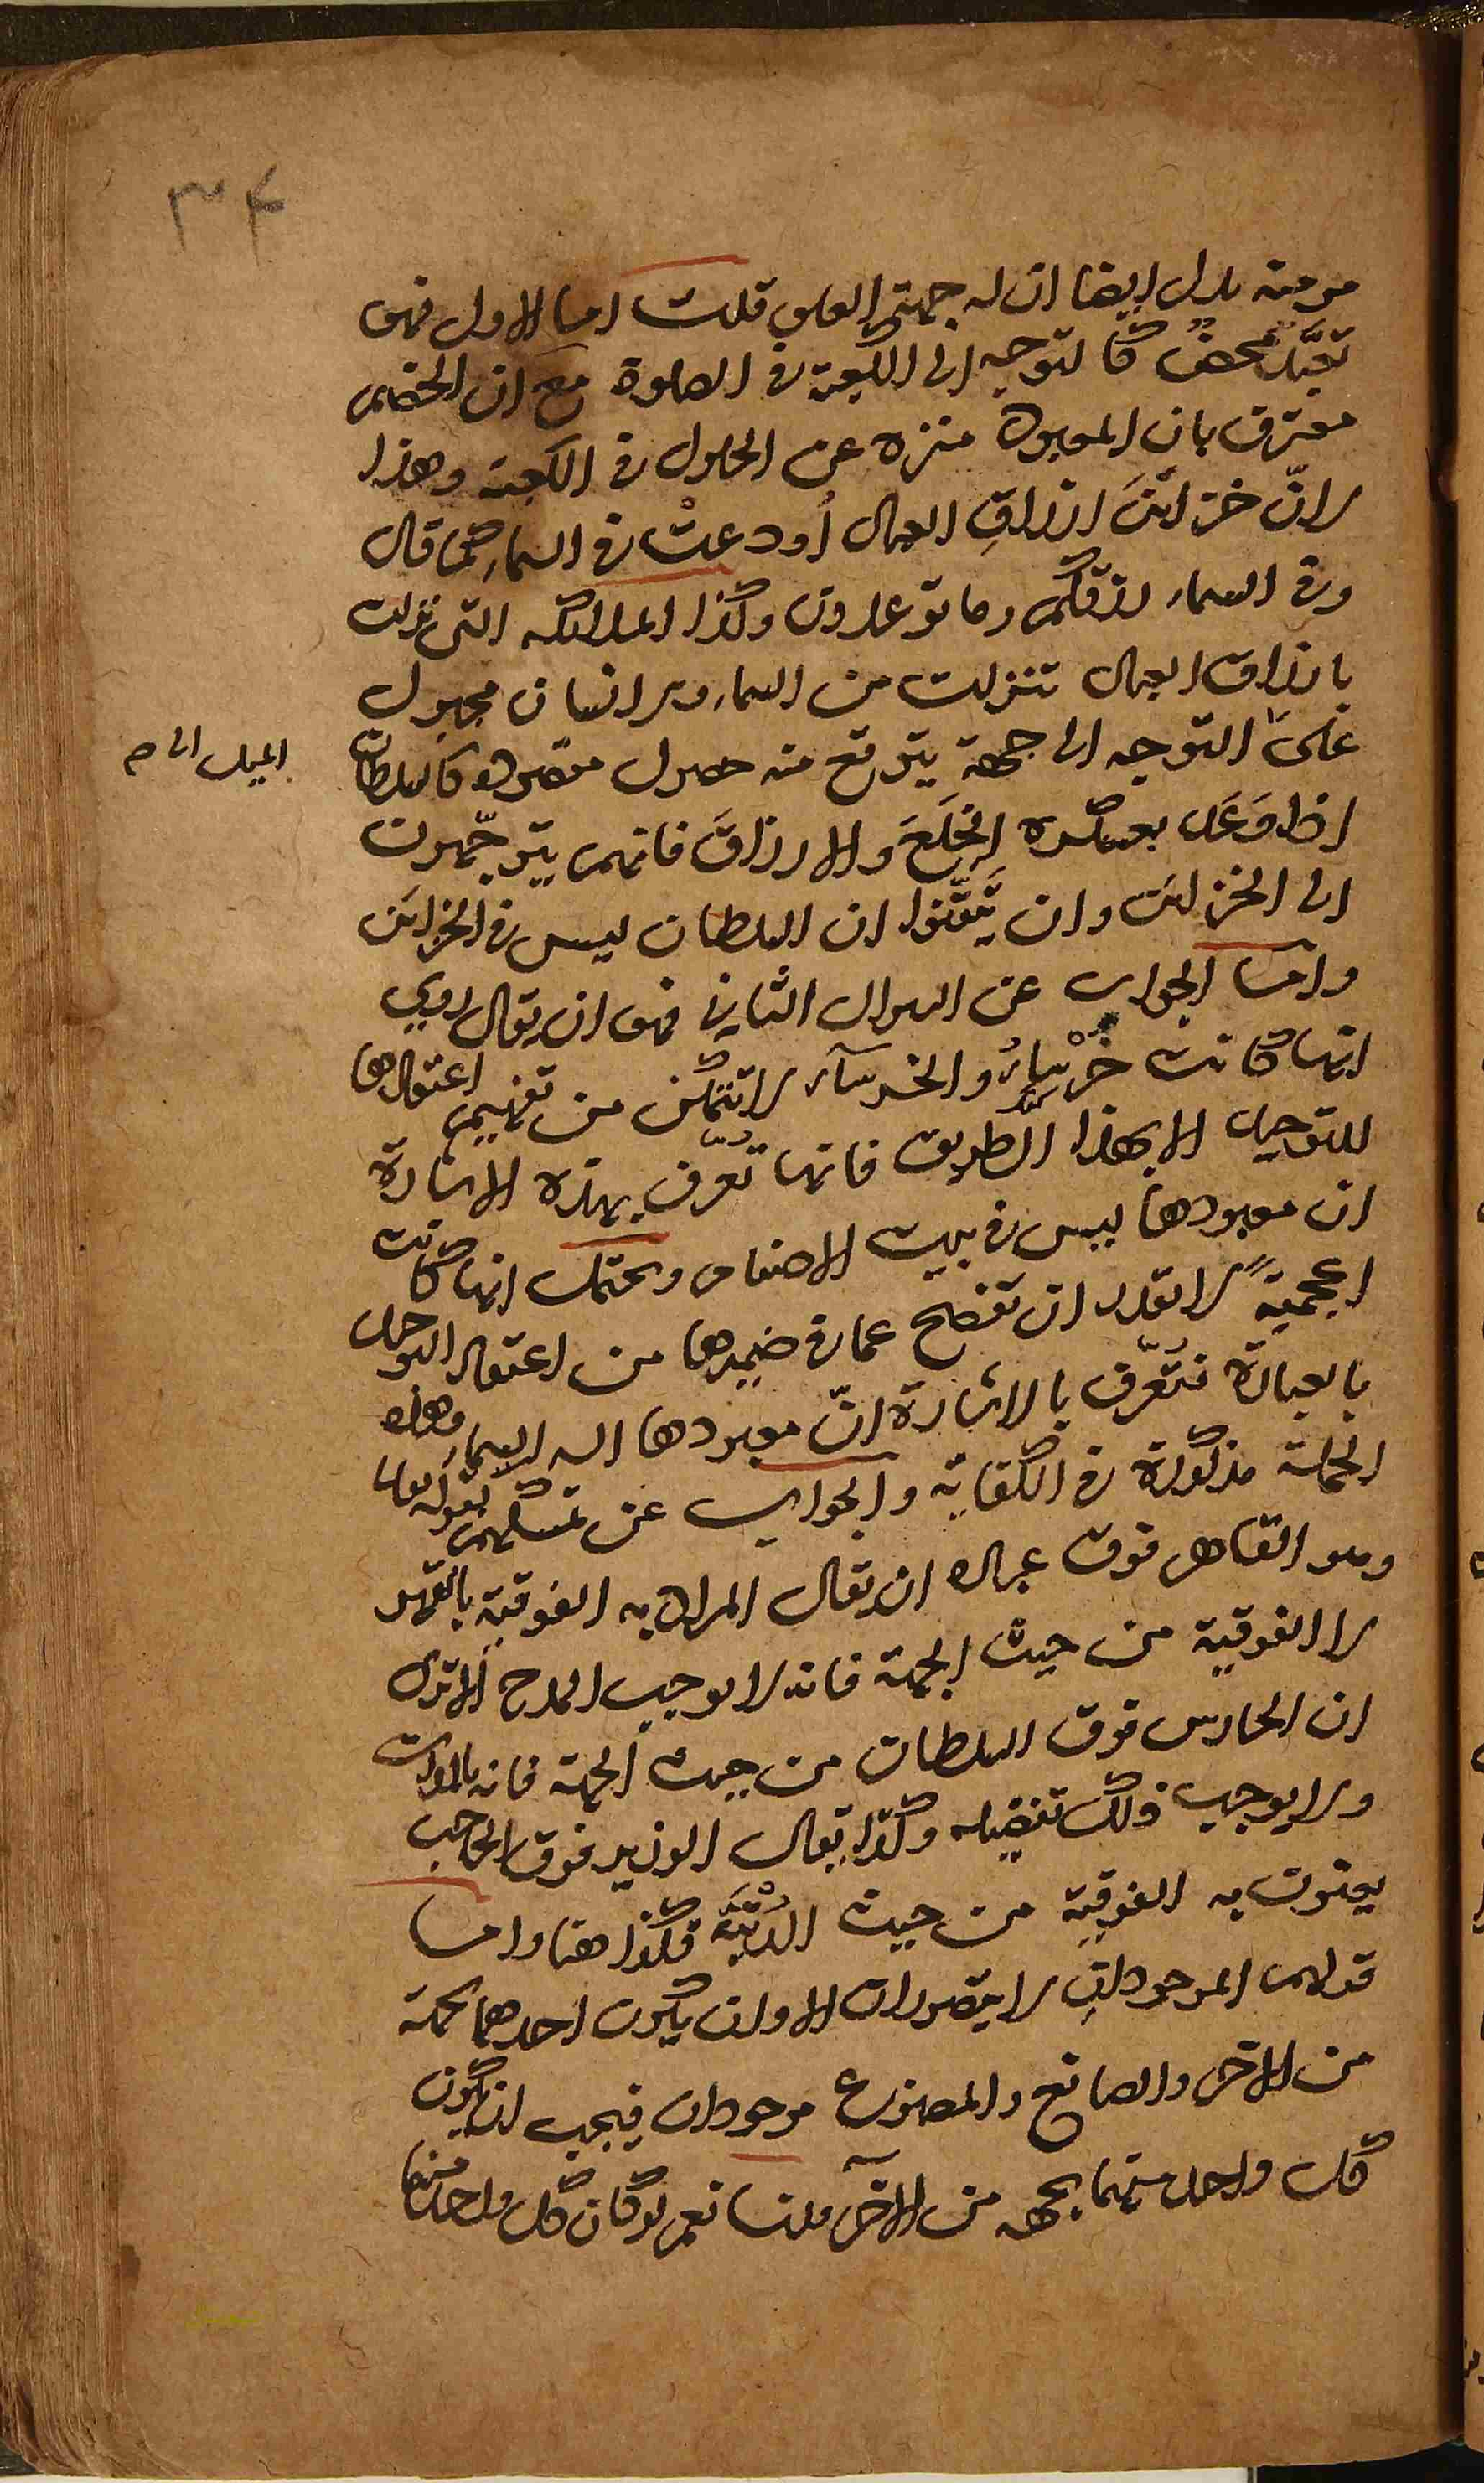 ٣٤
مومنة يدل ايضا ان له جهة العلو قلت اما الاول فهو
تعبّد محضٌ كالتوجه الى الكعبة في الصلوة مع ان الخصم
معترف بان المعبود منزه عن الحلول في الكعبة وهذا
لانّ خزائنَ ارزاقِ العباد أودعتْ في السماء كما قال
وفي السماء رزقكم وما توعدون وكذا الملائكة التي نزلت
بارزاق العباد تنزلت من السماء والانسان مجبول
على التوجه الى جهة يتوقع منه حصول مقصوده كالسلطان
الميل الى
اذا وَعَد بعسكره الخِلَعَ والارزاقَ فانهم يتوجّهون
الى الخزائن وان تيقّنوا ان السلطان ليس في الخزائن
واما الجواب عن السوال الثاني فهو ان يقال روي
انها كانت خَرْساءُ والخرساء لا تتمكن من تفهيم اعتقادها
للتوحيد الا بهذا الطريق فانها تُعرّف بهذه الاشارة
ان معبودها ليس في بيت الاصنام ويحتمل انها كانت
اعجميةً لا تقدر ان تفصح عما في ضميرها من اعتقاد التوحيد
بالعبارة فتُعرّف بالاشارة انّ معبودها اله السماء وهذه
الجملة مذكورة في الكفاية والجواب عن تمسكهم بقوله تعالى
وهو القاهر فوق عباده ان يقال المراد به الفوقية بالقهر
لا الفوقية من حيث الجهة فانه لا يوجب المدح ألا ترى
ان الحارس فوق السلطان من حيث الجهة فانه بالحراسة
ولا يوجب ذلك تفضيله وكذا يقال الوزير فوق الحاجب
يعنون به الفوقية من حيث الرُتْبَة فكذا هنا واما
قولهم الموجودانِ لا يتصوران الا وان يكون احدهما بجهة
من الآخر والصانع والمصنوع موجودان فيجب ان يكون
كل واحد منهما بجهة من الآخر قلنا نعم لو كان كل واحد منهما